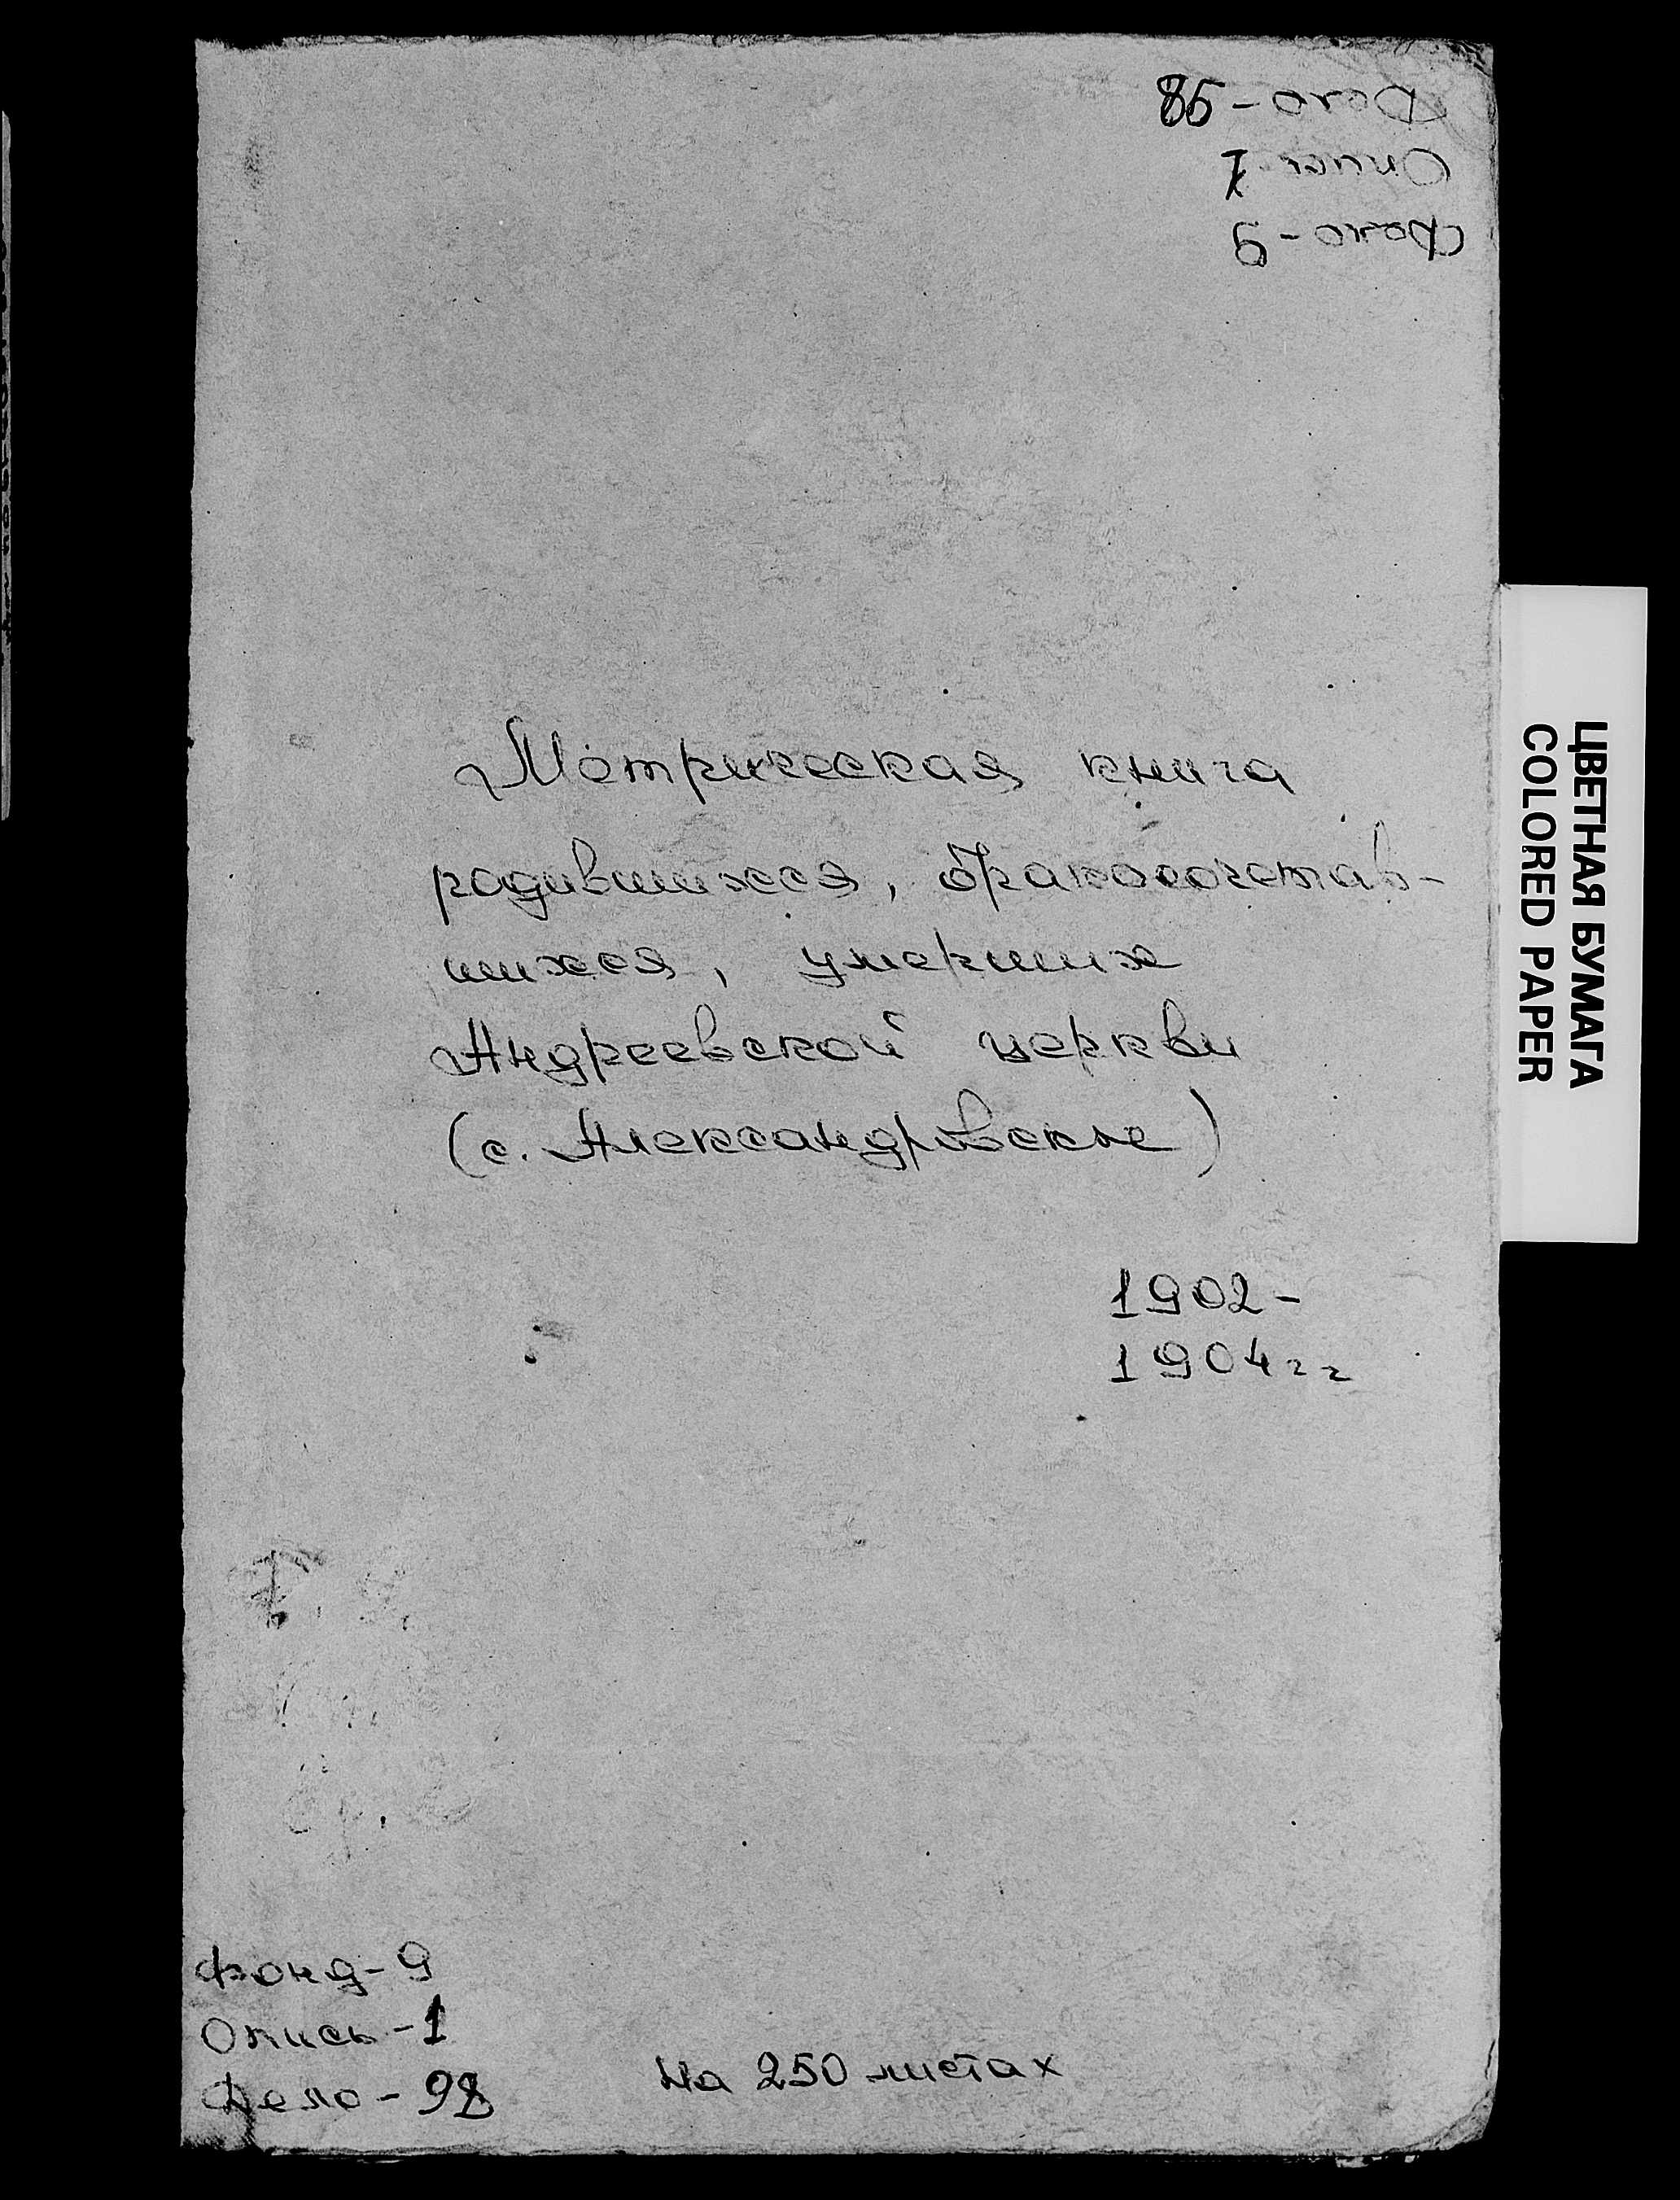 Фонд-9
Опись 1
Дело-98
Метрическая книга
родившихся, бракосочетав-
шихся, умерших
Андреевской церкви
(с. Александровское)
1902-
1904гг
Фонд-9
Опись-1
Дело-98
На 250 листах
ЦВЕТНАЯ БУМАГА
COLORED PAPER